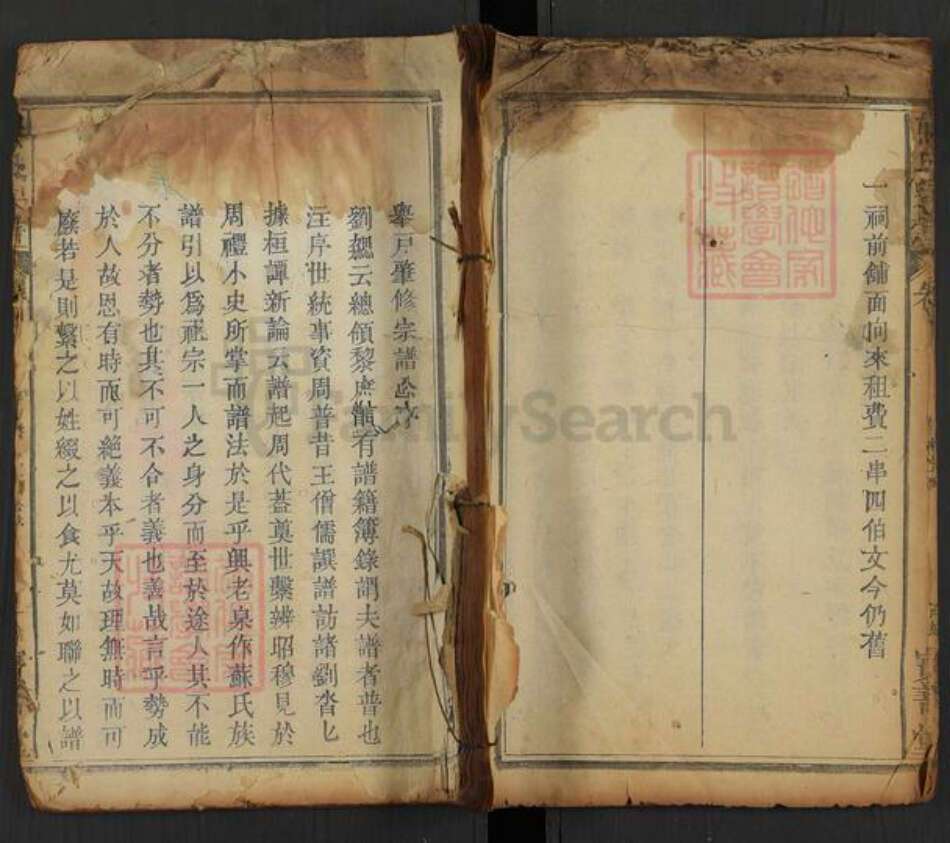 一祠前舖面向來租費二串四伯文今仍舊
舉戶肇修宗譜總序
劉勰云總領黎庶則有譜籍簿錄謂夫譜者普也
注序世統事資周普昔王僧儒譔譜訪諸劉杳七
據桓譚新論云譜起周代葢奠世繫辨昭穆見於
周禮小史所掌而譜法於是乎興老泉作蘇氏族
譜引以爲祖宗一人之身分而至於途人其不能
不分者勢也其不可不合者義也義哉言乎勢成
於人故恩有時而可絕義本乎天故理無時而可
廢若是則繫之以姓綴之以食尤莫如聯之以譜
FamilySearch